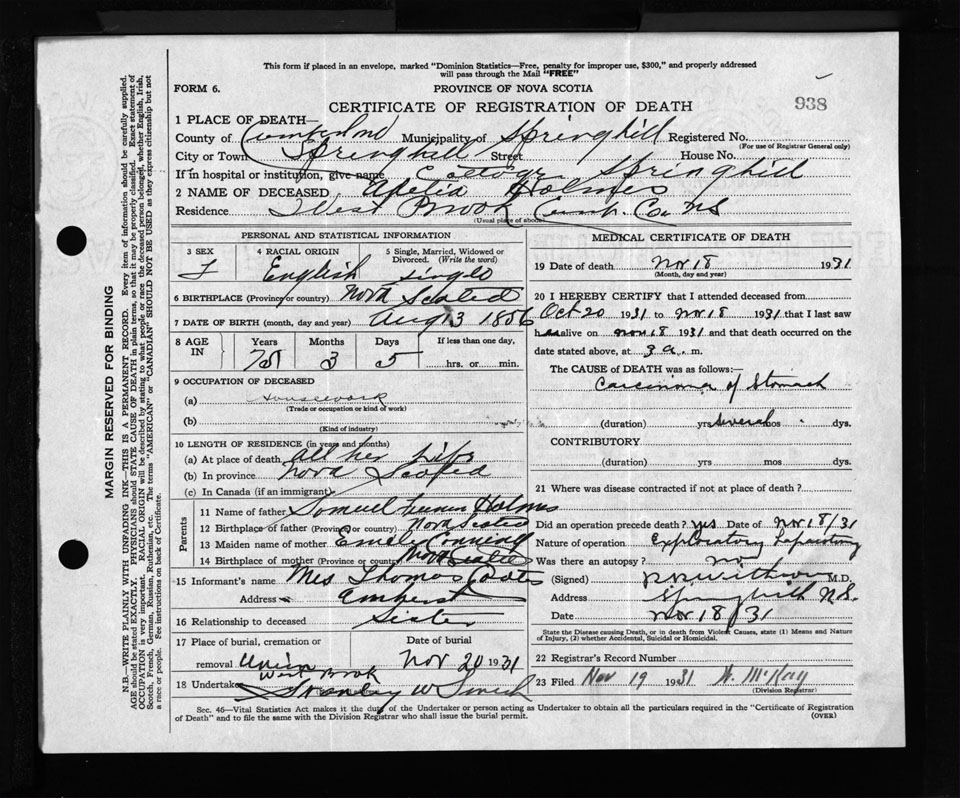 This form if placed in an envelope, marked "Dominion Statistics—Free, penalty for improper use, $300," and properly addressed
will pass through the Mail "FREE"
FORM 6.
PROVINCE OF NOVA SCOTIA
CERTIFICATE OF REGISTRATION OF DEATH
938
1 PLACE OF DEATH—
County of Cumberland Municipality of Springhill Registered No.
(For use of Registrar General only)
City or Town Springhill Street House No.
If in hospital or institution, give name Cottage Springhill
2 NAME OF DECEASED Adelia Holmes
Residence West Brook Cumb. Co NS
(Usual place of abode)
PERSONAL AND STATISTICAL INFORMATION
3 SEX 4 RACIAL ORIGIN 5 Single, Married, Widowed or
Divorced. (Write the word)
F English single
6 BIRTHPLACE (Province or country) Nova Scotia
7 DATE OF BIRTH (month, day and year) Aug 13 1856
8 AGE IN Years Months Days If less than one day,
75 3 5 hrs. or min.
9 OCCUPATION OF DECEASED
(a) Housework
(Trade or occupation or kind of work)
(b)
(Kind of industry)
10 LENGTH OF RESIDENCE (in years and months)
(a) At place of death all her life
(b) In province Nova Scotia
(c) In Canada (if an immigrant)
Parents
11 Name of father Samuel Holmes
12 Birthplace of father (Province or country) Nova Scotia
13 Maiden name of mother Emily
14 Birthplace of mother (Province or country) Nova Scotia
15 Informant's name Mrs Thomas Coates
Address Amherst
16 Relationship to deceased Sister
17 Place of burial, cremation or Date of burial
removal Union West Brook Nov 20 1931
18 Undertaker Stanley W Smith
MEDICAL CERTIFICATE OF DEATH
19 Date of death Nov 18 1931
(Month, day and year)
20 I HEREBY CERTIFY that I attended deceased from
Oct 20 1931 to Nov 18 1931 that I last saw
her alive on Nov 18 1931 and that death occurred on the
date stated above, at 3 a. m.
The CAUSE of DEATH was as follows:—
Carcinoma of Stomach
(duration) yrs several mos dys.
CONTRIBUTORY
(duration) yrs mos dys.
21 Where was disease contracted if not at place of death?
Did an operation precede death? yes Date of Nov 18/31
Nature of operation Exploratory Laparotomy
Was there an autopsy? no
(Signed) M.D.
Address Springhill N.S.
Date Nov 18/31
State the Disease causing Death, or in death from Violent Causes, state (1) Means and Nature
of Injury, (2) whether Accidental, Suicidal or Homicidal.
22 Registrar's Record Number
23 Filed Nov 19 1931 N. McKay
(Division Registrar)
Sec. 46—Vital Statistics Act makes it the duty of the Undertaker or person acting as Undertaker to obtain all the particulars required in the "Certificate of Registration
of Death" and to file the same with the Division Registrar who shall issue the burial permit.
(OVER)
MARGIN RESERVED FOR BINDING
N.B.—WRITE PLAINLY WITH UNFADING INK—THIS IS A PERMANENT RECORD. Every item of information should be carefully supplied.
AGE should be stated EXACTLY. PHYSICIANS should STATE CAUSE OF DEATH in plain terms, so that it may be properly classified. Exact statement of
OCCUPATION is very important. RACIAL ORIGIN will be described by stating to what people or race the deceased person belonged, whether English, Irish,
Scotch, French, German, Russian, Ruthenian, etc. The terms "AMERICAN" or "CANADIAN" SHOULD NOT BE USED as they express citizenship but not
a race or people. See instructions on back of Certificate.